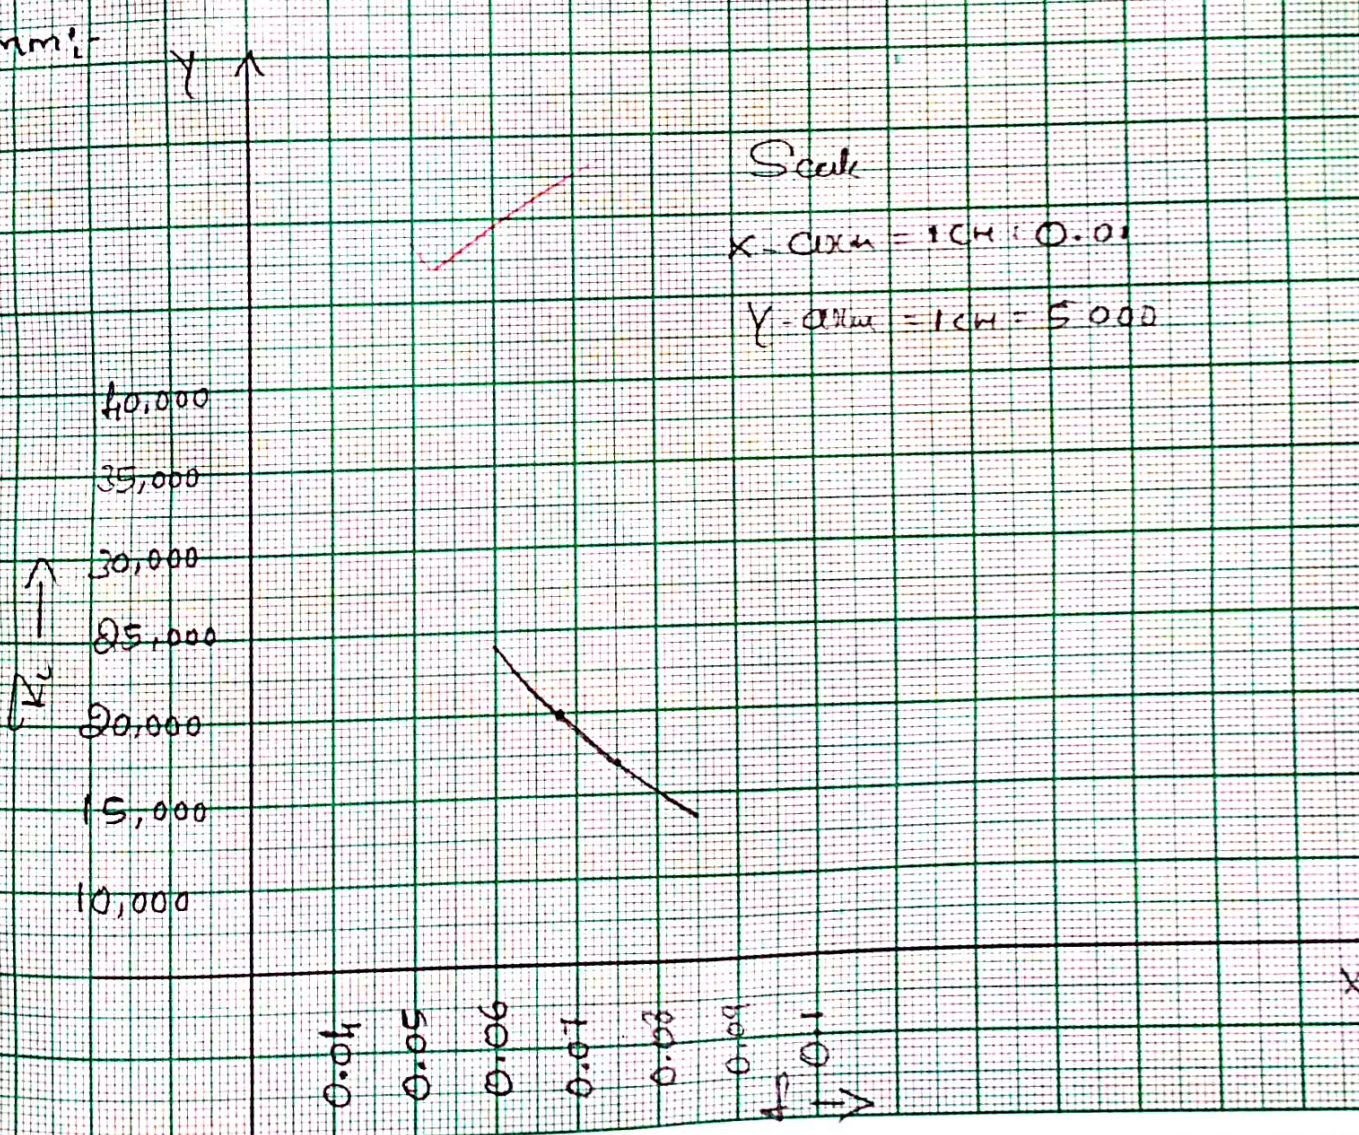 Y
Scale
X-axis = 1cm = 0.01
Y-axis = 1cm = 5000
40,000
35,000
30,000
25,000
20,000
15,000
10,000
X
0.04
0.05
0.06
0.07
0.08
0.09
0.1